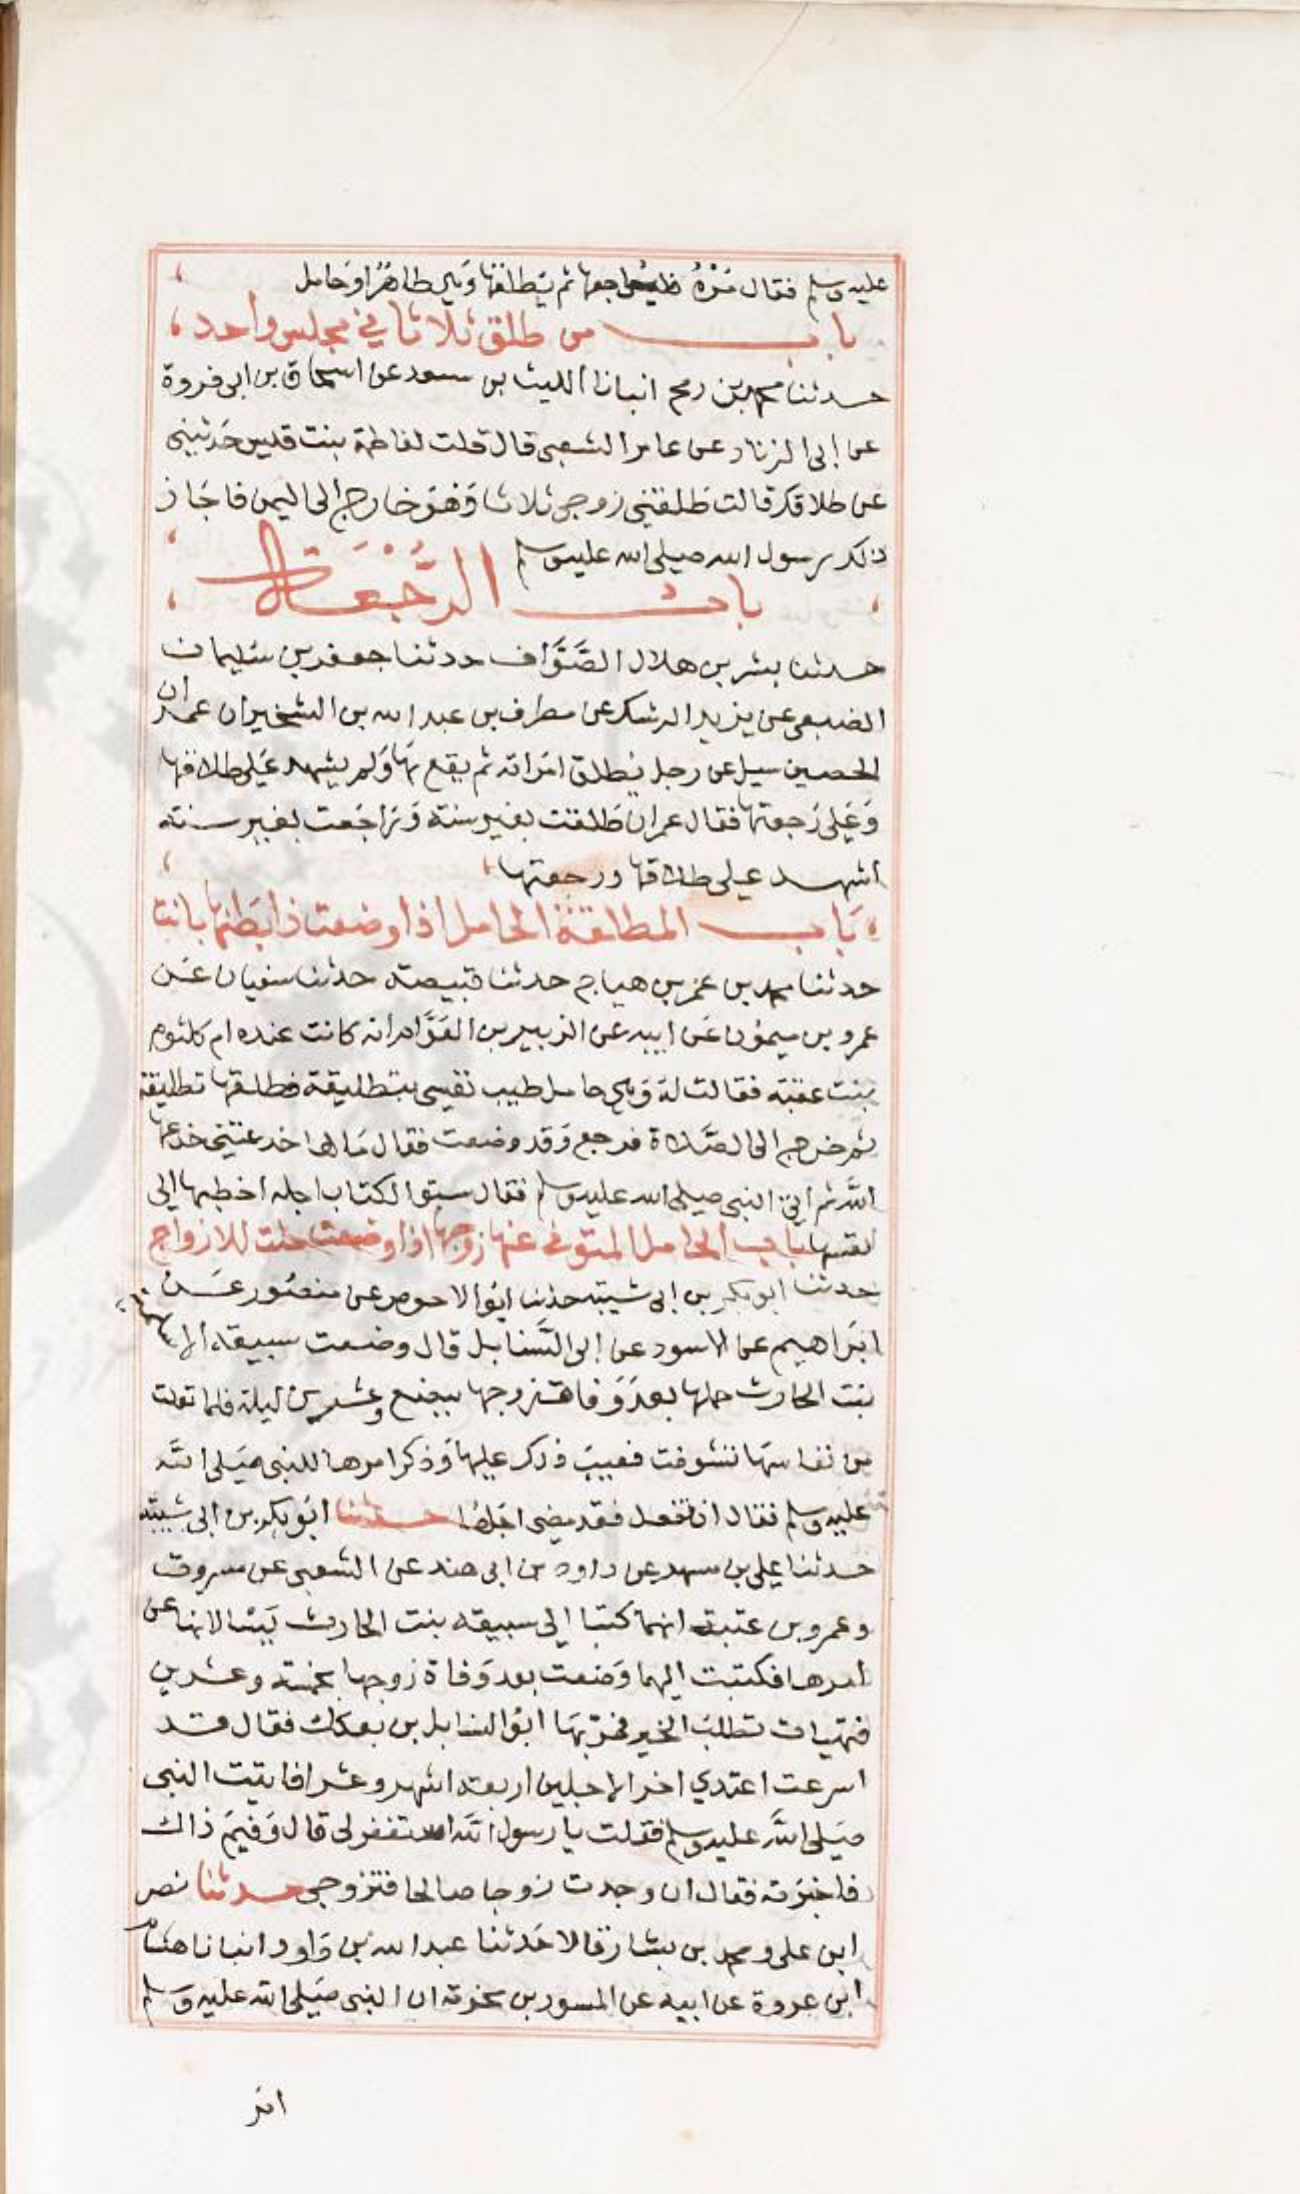 عليه وسلم فقال مره فليراجعها ثم يطلقها وهي طاهرا وحامل
باب من طلق ثلاثا في مجلس واحد
حدثنا محمد بن رمح انبانا الليث بن سعد عن اسحاق بن ابي فروة
عن ابي الزناد عن عامر الشعبي قال قلت لفاطمة بنت قيس حدثيني
عن طلاقك قالت طلقني زوجي ثلاثا وهو خارج الى اليمن فاجاز
ذلك رسول الله صلى الله عليه وسلم
باب الرجعة
حدثنا بشر بن هلال الصواف حدثنا جعفر بن سليمان
الضبعي عن يزيد الرشك عن مطرف بن عبد الله بن الشخير ان عمران
الحصين سيل عن رجل يطلق امراته ثم يقع بها ولم يشهد على طلاقها
وعلى رجعتها فقال عمران طلقت بغير سنة وراجعت بغير سنته
اشهد على طلاقها ورجعتها
باب المطلقة الحامل اذا وضعت ذا بطنها بانت
حدثنا محمد بن عمر بن هياج حدثنا قبيصة حدثنا سفيان عن
عمرو بن ميمون عن ابيه عن الزبير بن العوام انه كانت عنده ام كلثوم
بنت عقبة فقالت له وهي حامل طيب نفسي بتطليقة فطلقها تطليقة
ثم خرج الى الصلاة فرجع وقد وضعت فقال مالها خدعتني خدعها
الله ثم اتى النبي صلى الله عليه وسلم فقال سبق الكتاب اجله اخطبها الى
نفسها باب الحامل المتوفى عنها زوجها اذا وضعت حلت للازواج
حدثنا ابو بكر بن ابي شيبة حدثنا ابو الاحوص عن منصور عن
ابراهيم عن الاسود عن ابي السنابل قال وضعت سبيعة الاسلمية
بنت الحارث حملها بعد وفاة زوجها ببضع وعشرين ليلة فلما تعلت
من نفاسها تشوفت فعيب ذلك عليها وذكر امرها للنبي صلى الله
عليه وسلم فقال ان تفعل فقد مضى اجلها حدثنا ابو بكر بن ابي شيبة
حدثنا علي بن مسهر عن داود بن ابي هند عن الشعبي عن مسروق
وعمرو بن عتبة انهما كتبا الى سبيعة بنت الحارث يسالانها عن
امرها فكتبت اليهما وضعت بعد وفاة زوجها بخمسة وعشرين
فتهيات تطلب الخير فمر بها ابو السنابل بن بعكك فقال قد
اسرعت اعتدي اخر الاجلين اربعة اشهر وعشرا فاتيت النبي
صلى الله عليه وسلم فقلت يا رسول الله استغفر لي قال وفيم ذاك
فاخبرته فقال ان وجدت زوجا صالحا فتزوجي حدثنا نصر
ابن علي ومحمد بن بشار قالا حدثنا عبد الله بن داود انبانا هشام
ابن عروة عن ابيه عن المسور بن مخرمة ان النبي صلى الله عليه وسلم
امر